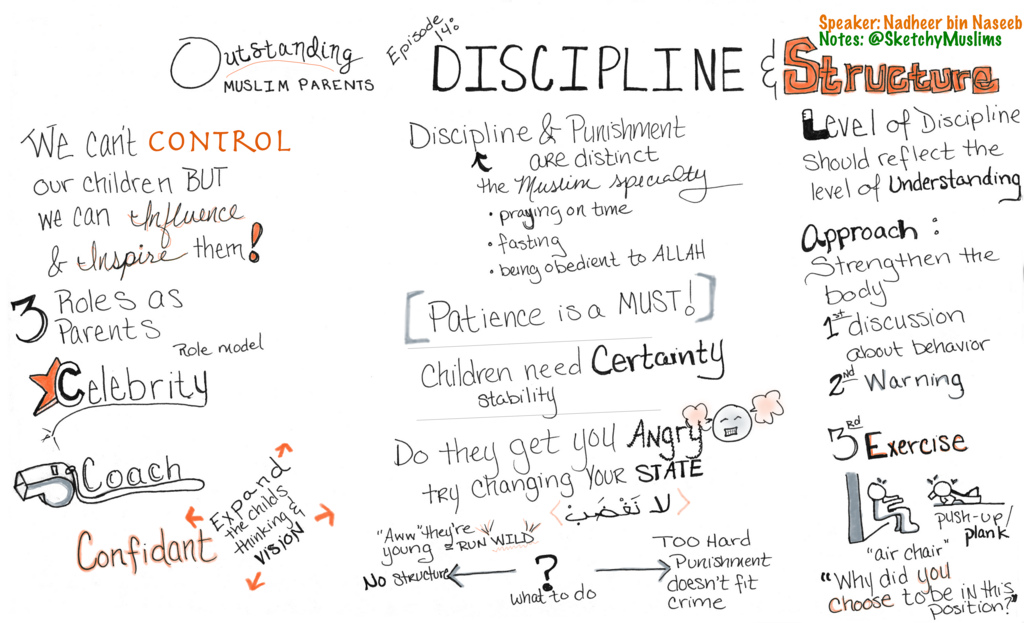 Speaker: Nadheer bin Naseeb
Notes: @SketchyMuslims
Outstanding
MUSLIM PARENTS
Episode
14:
DISCIPLINE & Structure
We can't CONTROL
our children BUT
we can Influence
& Inspire them!
3 Roles as
Parents
Role model
Celebrity
Coach
Confidant
Expand
the child's
thinking &
VISION
Discipline & Punishment
are distinct
the Muslim specialty
• praying on time
• fasting
• being obedient to ALLAH
[Patience is a MUST!]
Children need Certainty
stability
Do they get you Angry
try changing YOUR STATE
لا تَغْضَبْ
"Aww" they're
young = RUN WILD
No Structure
?
what to do
TOO Hard
Punishment
doesn't fit
crime
Level of Discipline
Should reflect the
level of Understanding
Approach:
Strengthen the
body
1st discussion
about behavior
2nd Warning
3rd Exercise
"air chair"
push-up/
plank
"Why did you
choose to be in this
position?"